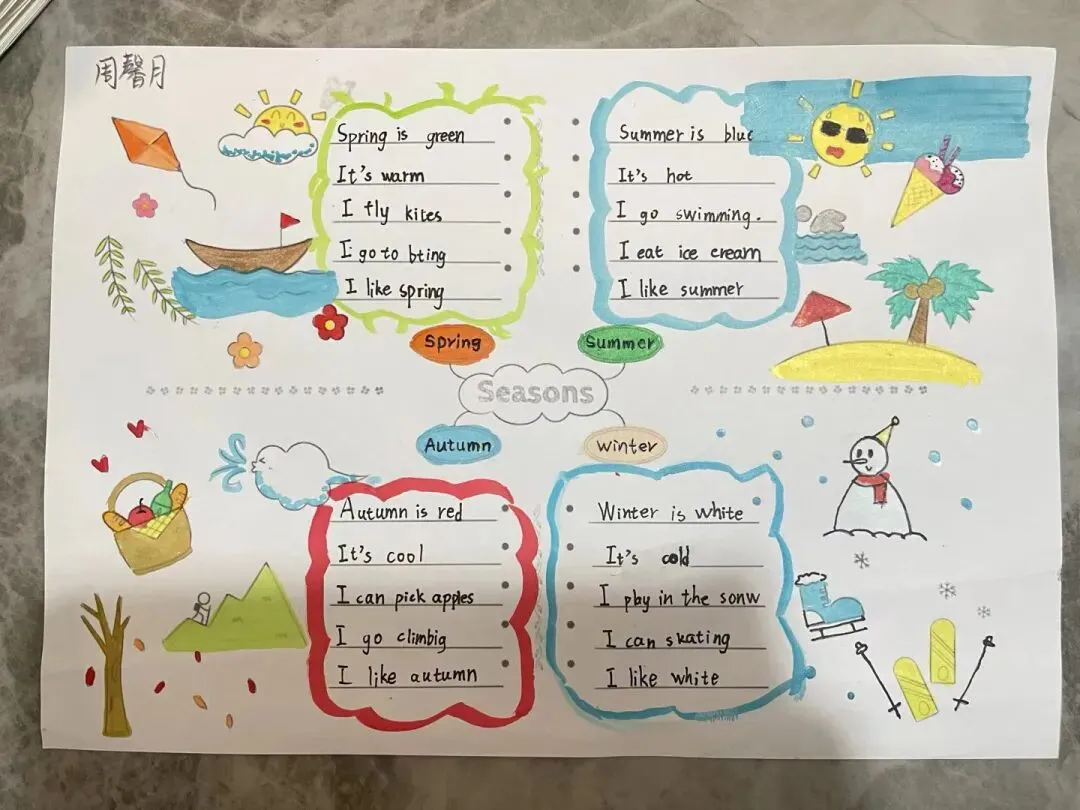 周馨月
Spring is green
It's warm
I fly kites
I go to bting
I like spring
Summer is blue
It's hot
I go swimming.
I eat ice cream
I like summer
Spring
Summer
Seasons
Autumn
winter
Autumn is red
It's cool
I can pick apples
I go climbig
I like autumn
Winter is white
It's cold
I play in the sonw
I can skating
I like white